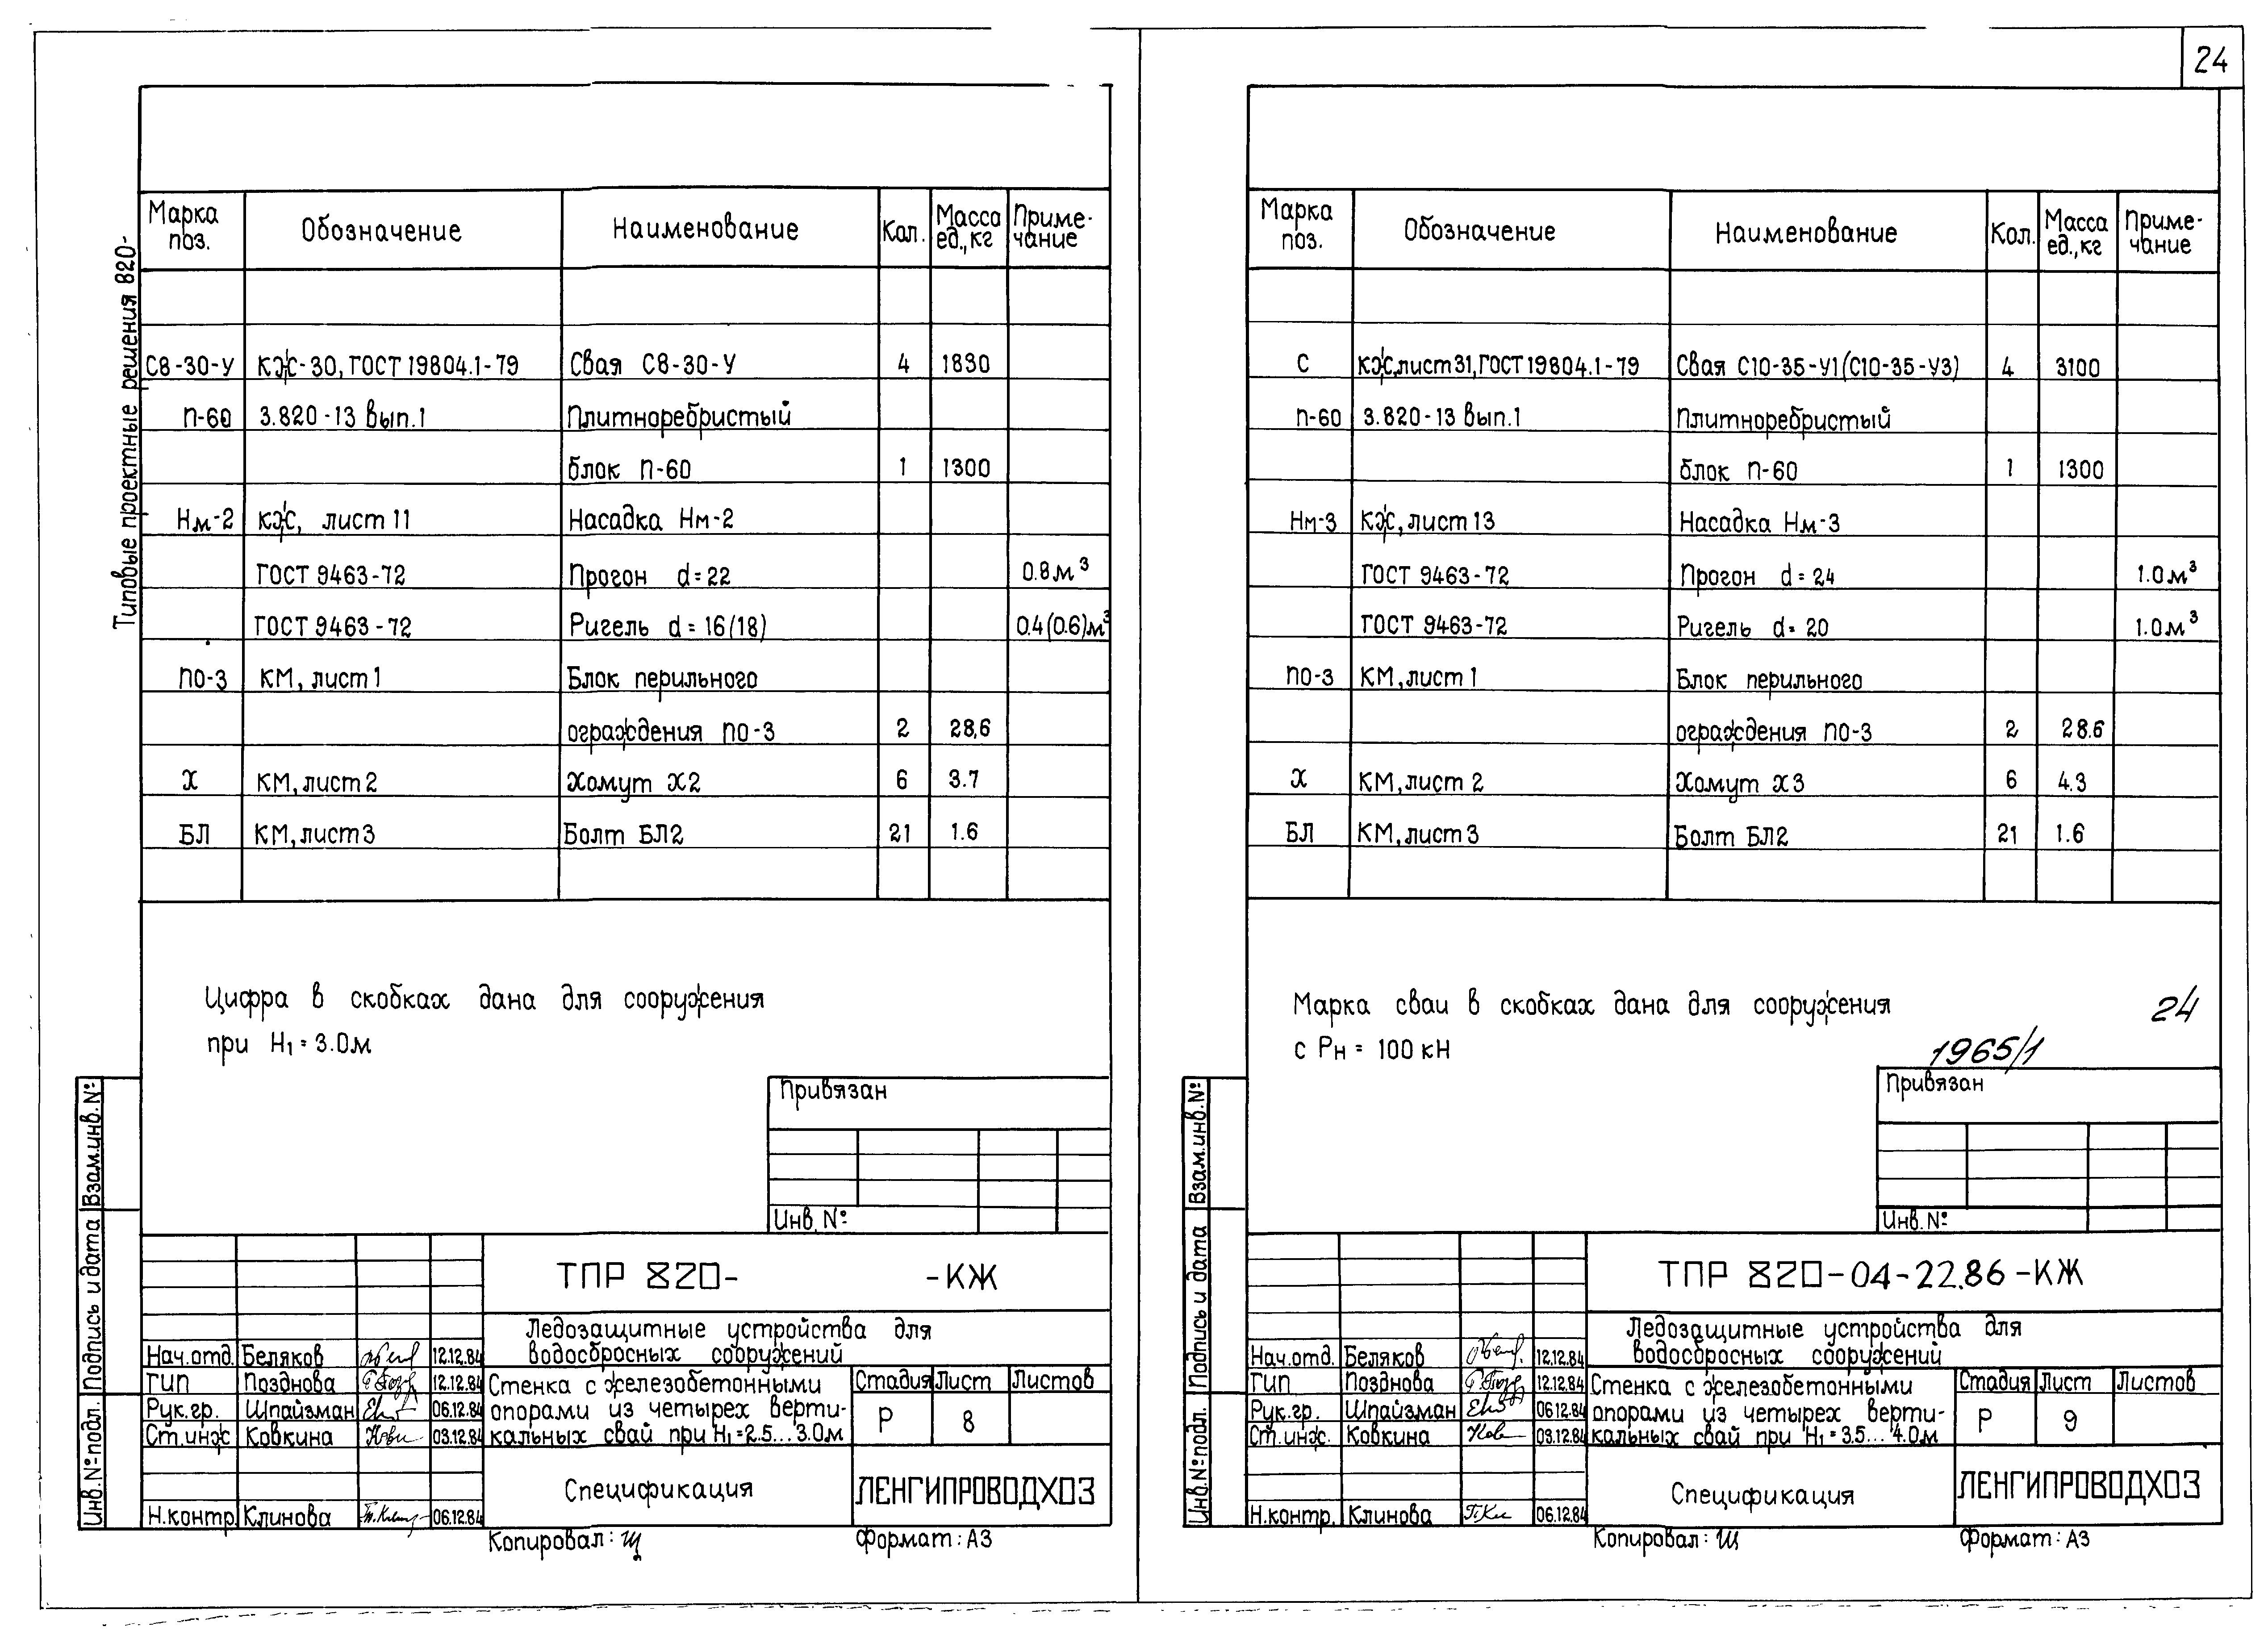 24
Типовые проектные решения 820-
Марка поз. Обозначение Наименование Кол. Масса ед.,кг Приме-чание
С8-30-У КЖ-30, ГОСТ 19804.1-79 Свая С8-30-У 4 1830
П-60 3.820-13 вып.1 Плитноребристый
блок П-60 1 1300
Нм-2 КЖ, лист 11 Насадка Нм-2
ГОСТ 9463-72 Прогон d=22 0.8м³
ГОСТ 9463-72 Ригель d=16(18) 0.4(0.6)м³
ПО-3 КМ, лист 1 Блок перильного
ограждения ПО-3 2 28,6
Х КМ, лист 2 Хомут Х2 6 3.7
БЛ КМ, лист 3 Болт БЛ2 21 1.6
Цифра в скобках дана для сооружения
при H₁=3.0м
Привязан
Инв. №
Взам.инв.№
Подпись и дата
Инв.№ подл.
ТПР 820- -КЖ
Ледозащитные устройства для
водосбросных сооружений
Нач.отд. Беляков 12.12.84
ГИП Позднова 12.12.84
Рук.гр. Шпайзман 06.12.84
Ст.инж Ковкина 03.12.84
Н.контр. Клинова 06.12.84
Стенка с железобетонными
опорами из четырех верти-
кальных свай при H₁=2.5...3.0м
Стадия Лист Листов
Р 8
Спецификация
ЛЕНГИПРОВОДХОЗ
Копировал: Щ Формат: А3
Марка поз. Обозначение Наименование Кол. Масса ед.,кг Приме-чание
С КЖ,лист 31, ГОСТ 19804.1-79 Свая С10-35-У1 (С10-35-У3) 4 3100
П-60 3.820-13 вып.1 Плитноребристый
блок П-60 1 1300
Нм-3 КЖ, лист 13 Насадка Нм-3
ГОСТ 9463-72 Прогон d=24 1.0м³
ГОСТ 9463-72 Ригель d=20 1.0м³
ПО-3 КМ, лист 1 Блок перильного
ограждения ПО-3 2 28.6
Х КМ, лист 2 Хомут Х3 6 4.3
БЛ КМ, лист 3 Болт БЛ2 21 1.6
Марка сваи в скобках дана для сооружения
с Рн = 100 кН
24
1965/1
Привязан
Инв. №
Взам.инв.№
Подпись и дата
Инв.№ подл.
ТПР 820-04-22.86-КЖ
Ледозащитные устройства для
водосбросных сооружений
Нач.отд. Беляков 12.12.84
ГИП Позднова 12.12.84
Рук.гр. Шпайзман 06.12.84
Ст.инж. Ковкина 03.12.84
Н.контр. Клинова 06.12.84
Стенка с железобетонными
опорами из четырех верти-
кальных свай при H₁=3.5...4.0м
Стадия Лист Листов
Р 9
Спецификация
ЛЕНГИПРОВОДХОЗ
Копировал: Щ Формат: А3